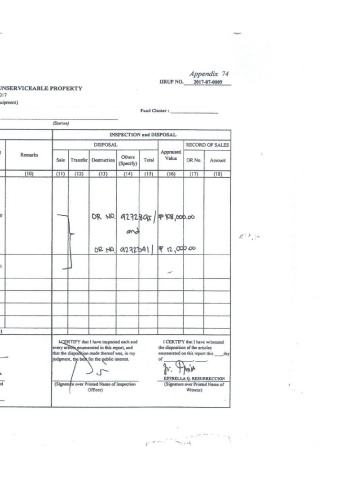 Appendix 74
IIRUP NO. 2017-07-0009
UNSERVICEABLE PROPERTY
017
uipment)
Fund Cluster :
(Station)
INSPECTION and DISPOSAL
DISPOSAL
RECORD OF SALES
Remarks
Sale
Transfer
Destruction
Others (Specify)
Total
Appraised Value
OR No.
Amount
(10)
(11)
(12)
(13)
(14)
(15)
(16)
(17)
(18)
OR NO.
and
OR NO.
₱ 12,000.00
I CERTIFY that I have inspected each and
every article enumerated in this report, and
that the disposition made thereof was, in my
judgment, the best for the public interest.
I CERTIFY that I have witnessed
the disposition of the articles
enumerated on this report this ____day
of
ESTRELLA Q. RESURRECCION
(Signature over Printed Name of Inspection
Officer)
(Signature over Printed Name of
Witness)